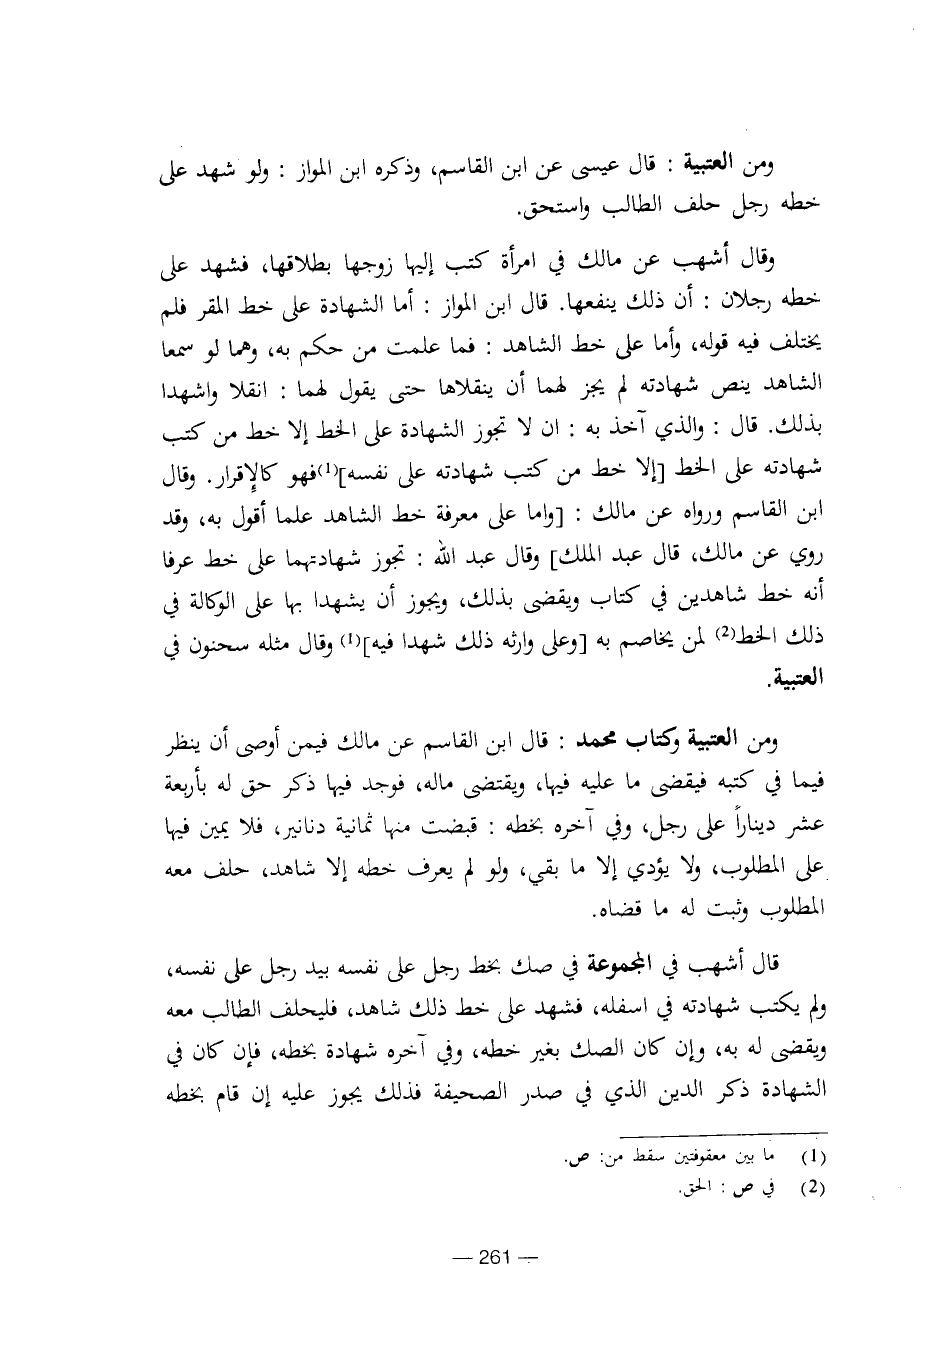 ومن العتبية : قال عيسى عن ابن القاسم، وذكره ابن المواز : ولو شهد على
خطه رجل حلف الطالب واستحق.
وقال أشهب عن مالك في امرأة كتب إليها زوجها بطلاقها، فشهد على
خطه رجلان : أن ذلك ينفعها. قال ابن المواز : أما الشهادة على خط المقر فلم
يختلف فيه قوله، وأما على خط الشاهد : فما علمت من حكم به، وهما لو سمعا
الشاهد ينص شهادته لم يجز لهما أن ينقلاها حتى يقول لهما : انقلا واشهدا
بذلك. قال : والذي آخذ به : ان لا تجوز الشهادة على الخط إلا خط من كتب
شهادته على الخط [إلا خط من كتب شهادته على نفسه](1)فهو كالإقرار. وقال
ابن القاسم ورواه عن مالك : [واما على معرفة خط الشاهد علما أقول به، وقد
روي عن مالك، قال عبد الملك] وقال عبد الله : تجوز شهادتهما على خط عرفا
أنه خط شاهدين في كتاب ويقضى بذلك، ويجوز أن يشهدا بها على الوكالة في
ذلك الخط(2) لمن يخاصم به [وعلى وارثه ذلك شهدا فيه](1) وقال مثله سحنون في
العتبية.
ومن العتبية وكتاب محمد : قال ابن القاسم عن مالك فيمن أوصى أن ينظر
فيما في كتبه فيقضى ما عليه فيها، ويقتضى ماله، فوجد فيها ذكر حق له بأربعة
عشر ديناراً على رجل، وفي آخره بخطه : قبضت منها ثمانية دنانير، فلا يمين فيها
على المطلوب، ولا يؤدي إلا ما بقي، ولو لم يعرف خطه إلا شاهد، حلف معه
المطلوب وثبت له ما قضاه.
قال أشهب في المجموعة في صك بخط رجل على نفسه بيد رجل على نفسه،
ولم يكتب شهادته في اسفله، فشهد على خط ذلك شاهد، فليحلف الطالب معه
ويقضى له به، وإن كان الصك بغير خطه، وفي آخره شهادة بخطه، فإن كان في
الشهادة ذكر الدين الذي في صدر الصحيفة فذلك يجوز عليه إن قام بخطه
(1) ما بين معقوفتين سقط من: ص.
(2) في ص : الحق.
— 261 —